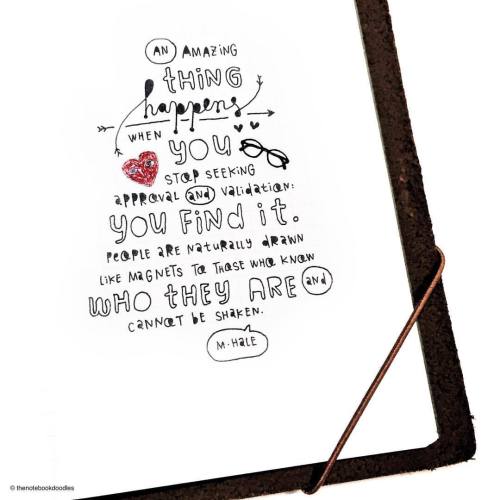 AN AMAZING
THING
happens
WHEN YOU
STOP SEEKING
APPROVAL and validation:
YOU FIND it.
PEOPLE ARE NATURALLY DRAWN
LIKE MAGNETS TO THOSE WHO KNOW
WHO THEY ARE and
CANNOT BE SHAKEN.
M. HALE
© thenotebookdoodles